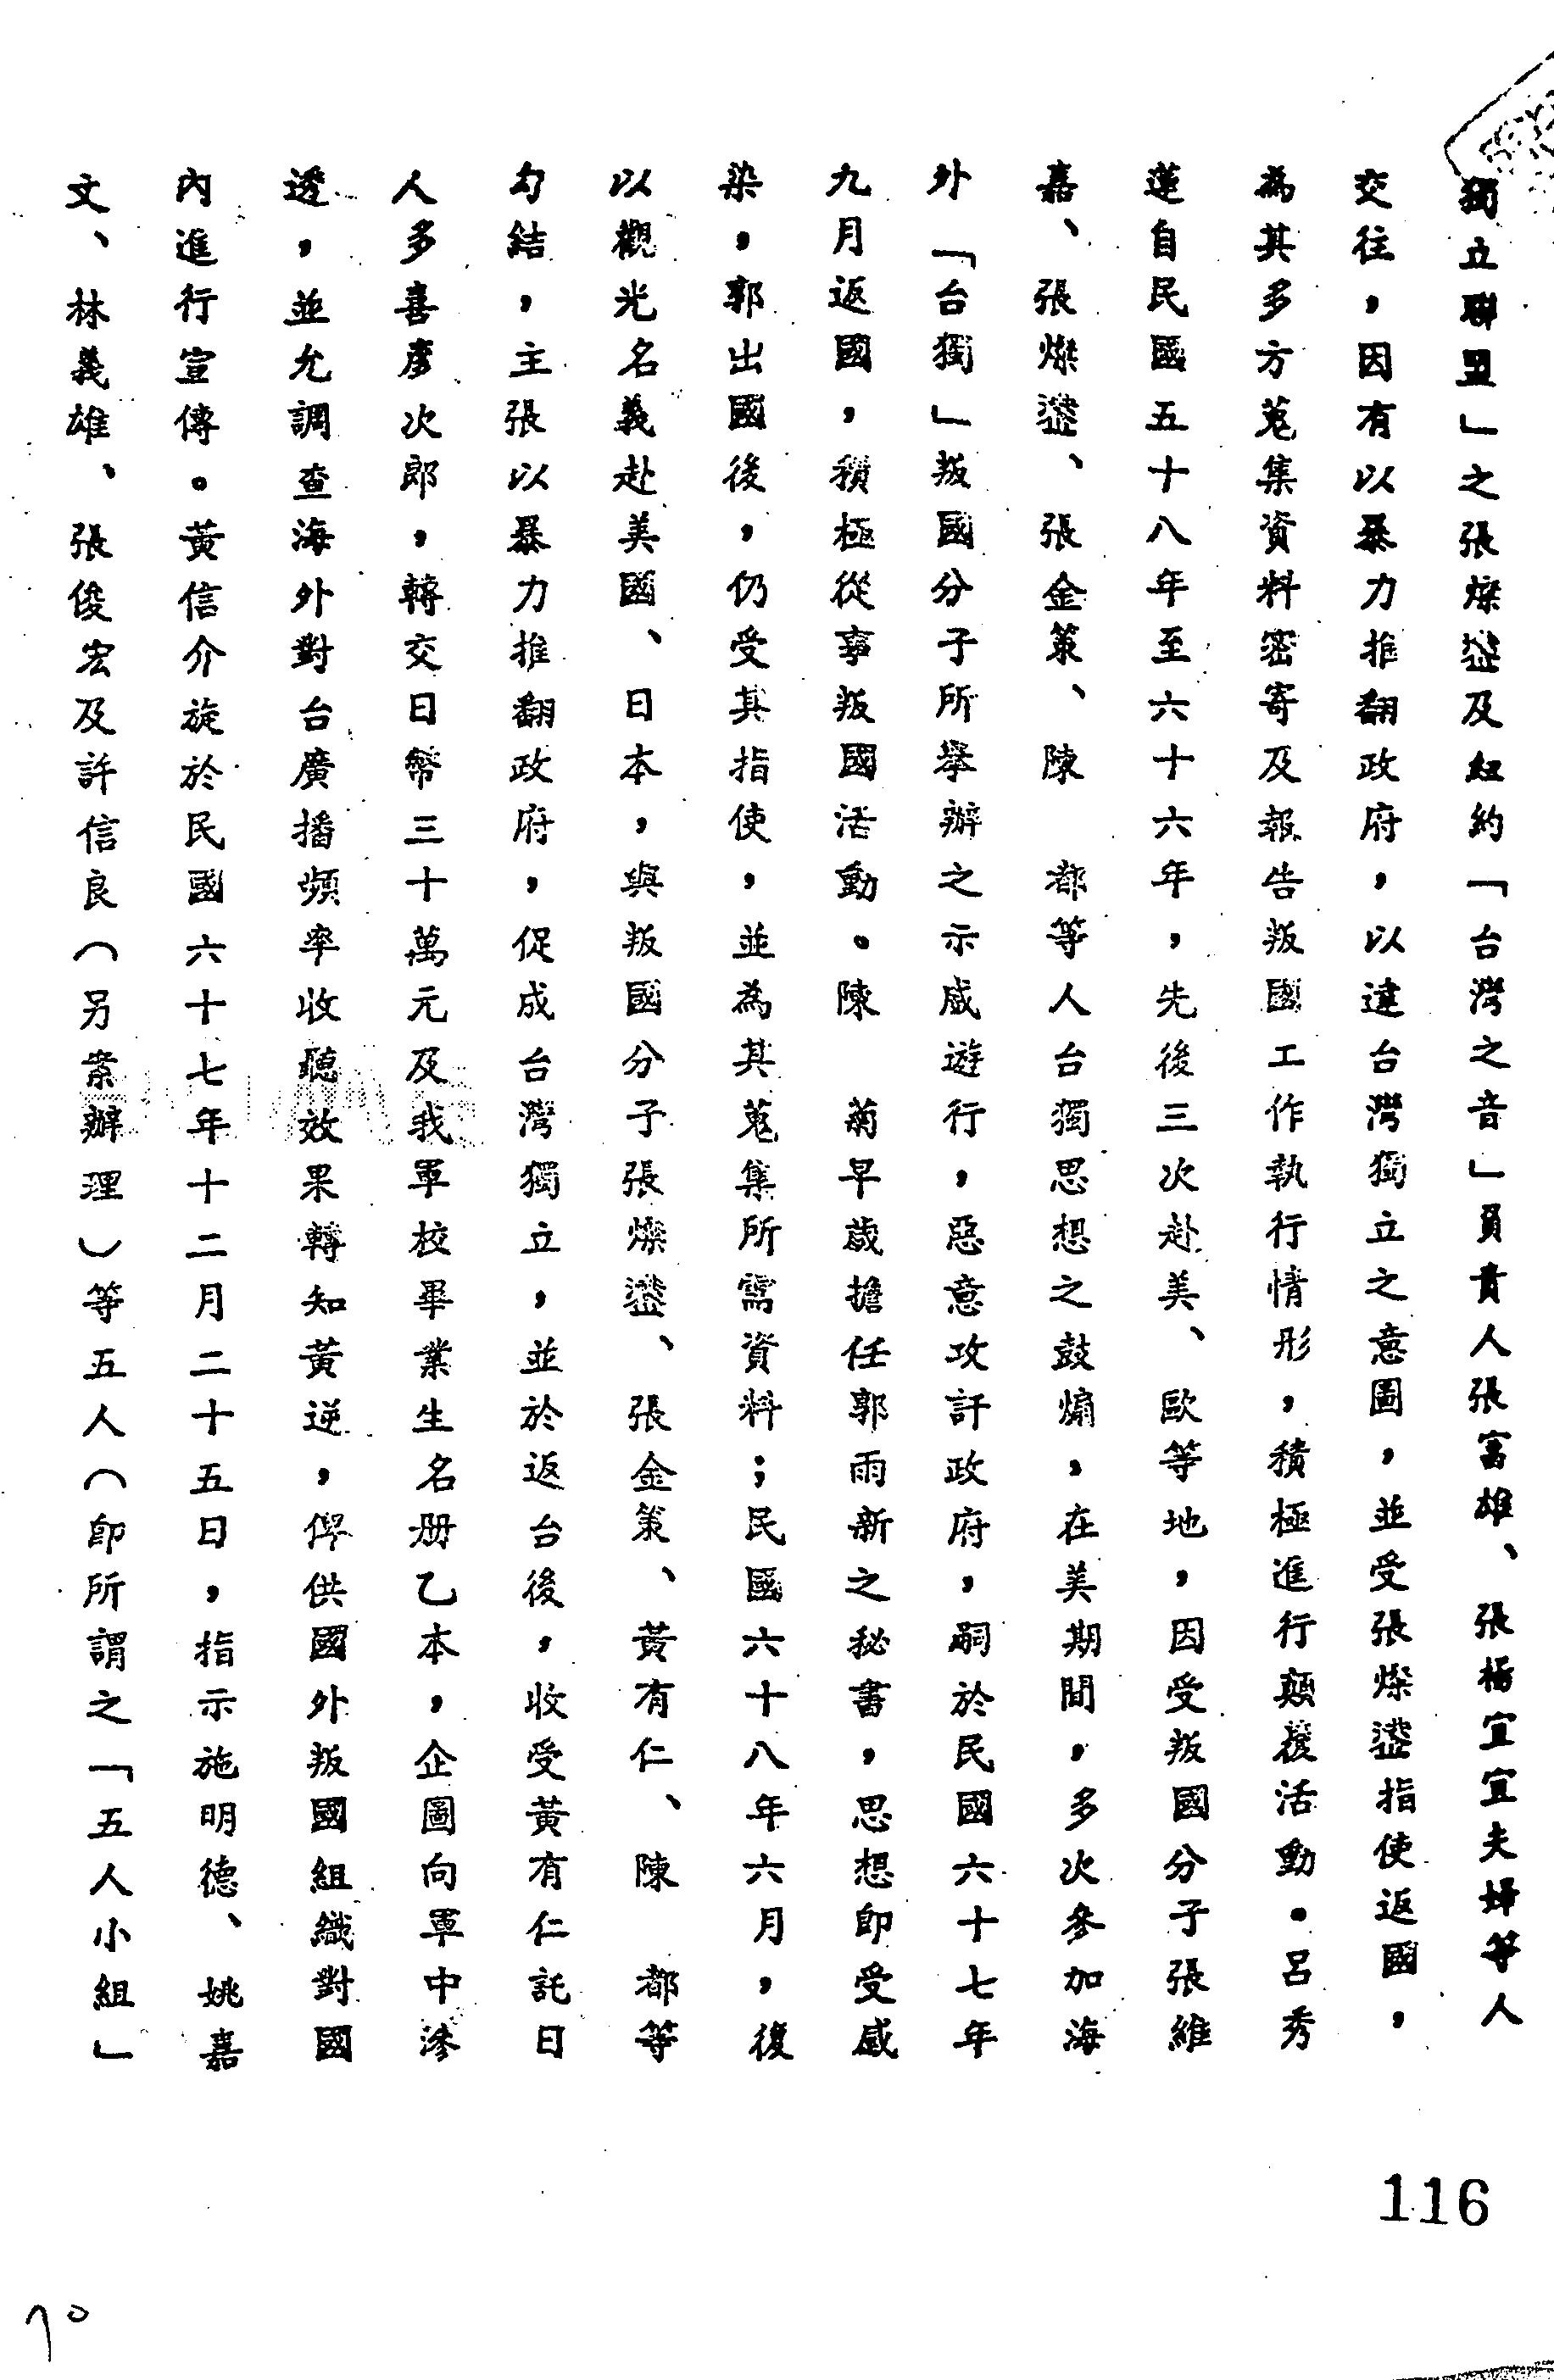 獨立聯盟」之張燦鍙及紐約「台灣之音」負責人張富雄、張楊宜宜夫婦等人
交往，因有以暴力推翻政府，以達台灣獨立之意圖，並受張燦鍙指使返國，
為其多方蒐集資料密寄及報告叛國工作執行情形，積極進行顛覆活動。呂秀
蓮自民國五十八年至六十六年，先後三次赴美、歐等地，因受叛國分子張維
嘉、張燦鍙、張金策、陳　都等人台獨思想之鼓煽，在美期間，多次參加海
外「台獨」叛國分子所舉辦之示威遊行，惡意攻訐政府，嗣於民國六十七年
九月返國，積極從事叛國活動。陳　菊早歲擔任郭雨新之秘書，思想即受感
染，郭出國後，仍受其指使，並為其蒐集所需資料；民國六十八年六月，復
以觀光名義赴美國、日本，與叛國分子張燦鍙、張金策、黃有仁、陳　都等
勾結，主張以暴力推翻政府，促成台灣獨立，並於返台後，收受黃有仁託日
人多喜彥次郎，轉交日幣三十萬元及我軍校畢業生名冊乙本，企圖向軍中滲
透，並允調查海外對台廣播頻率收聽效果轉知黃逆，俾供國外叛國組織對國
內進行宣傳。黃信介旋於民國六十七年十二月二十五日，指示施明德、姚嘉
文、林義雄、張俊宏及許信良（另案辦理）等五人（即所謂之「五人小組」
116